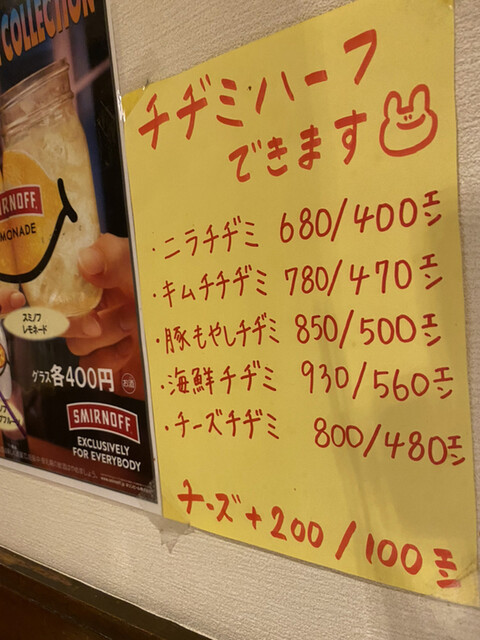 COLLECTION
SMIRNOFF
LEMONADE
スミノフ
レモネード
グラス各400円
お酒
SMIRNOFF
EXCLUSIVELY
FOR EVERYBODY
チヂミハーフ
できます
・ニラチヂミ 680/400エン
・キムチチヂミ 780/470エン
・豚もやしチヂミ 850/500エン
・海鮮チヂミ 930/560エン
・チーズチヂミ 800/480エン
チーズ+200/100エン